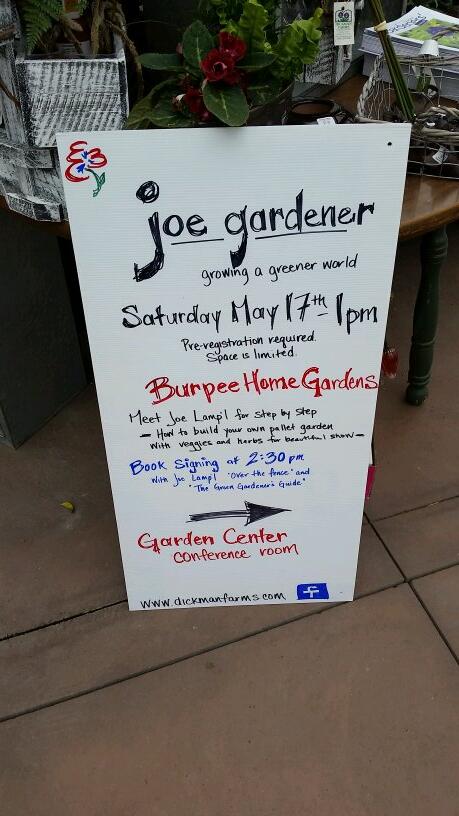 joe gardener
growing a greener world
Saturday May 17th - 1pm
Pre-registration required.
Space is limited.
Burpee Home Gardens
Meet Joe Lamp'l for Step by Step
— How to build your own pallet garden
with veggies and herbs for beautiful show —
Book Signing at 2:30 pm
with Joe Lamp'l "Over the fence" and
"The Green Gardener's Guide"
Garden Center
conference room
www.dickmanfarms.com f